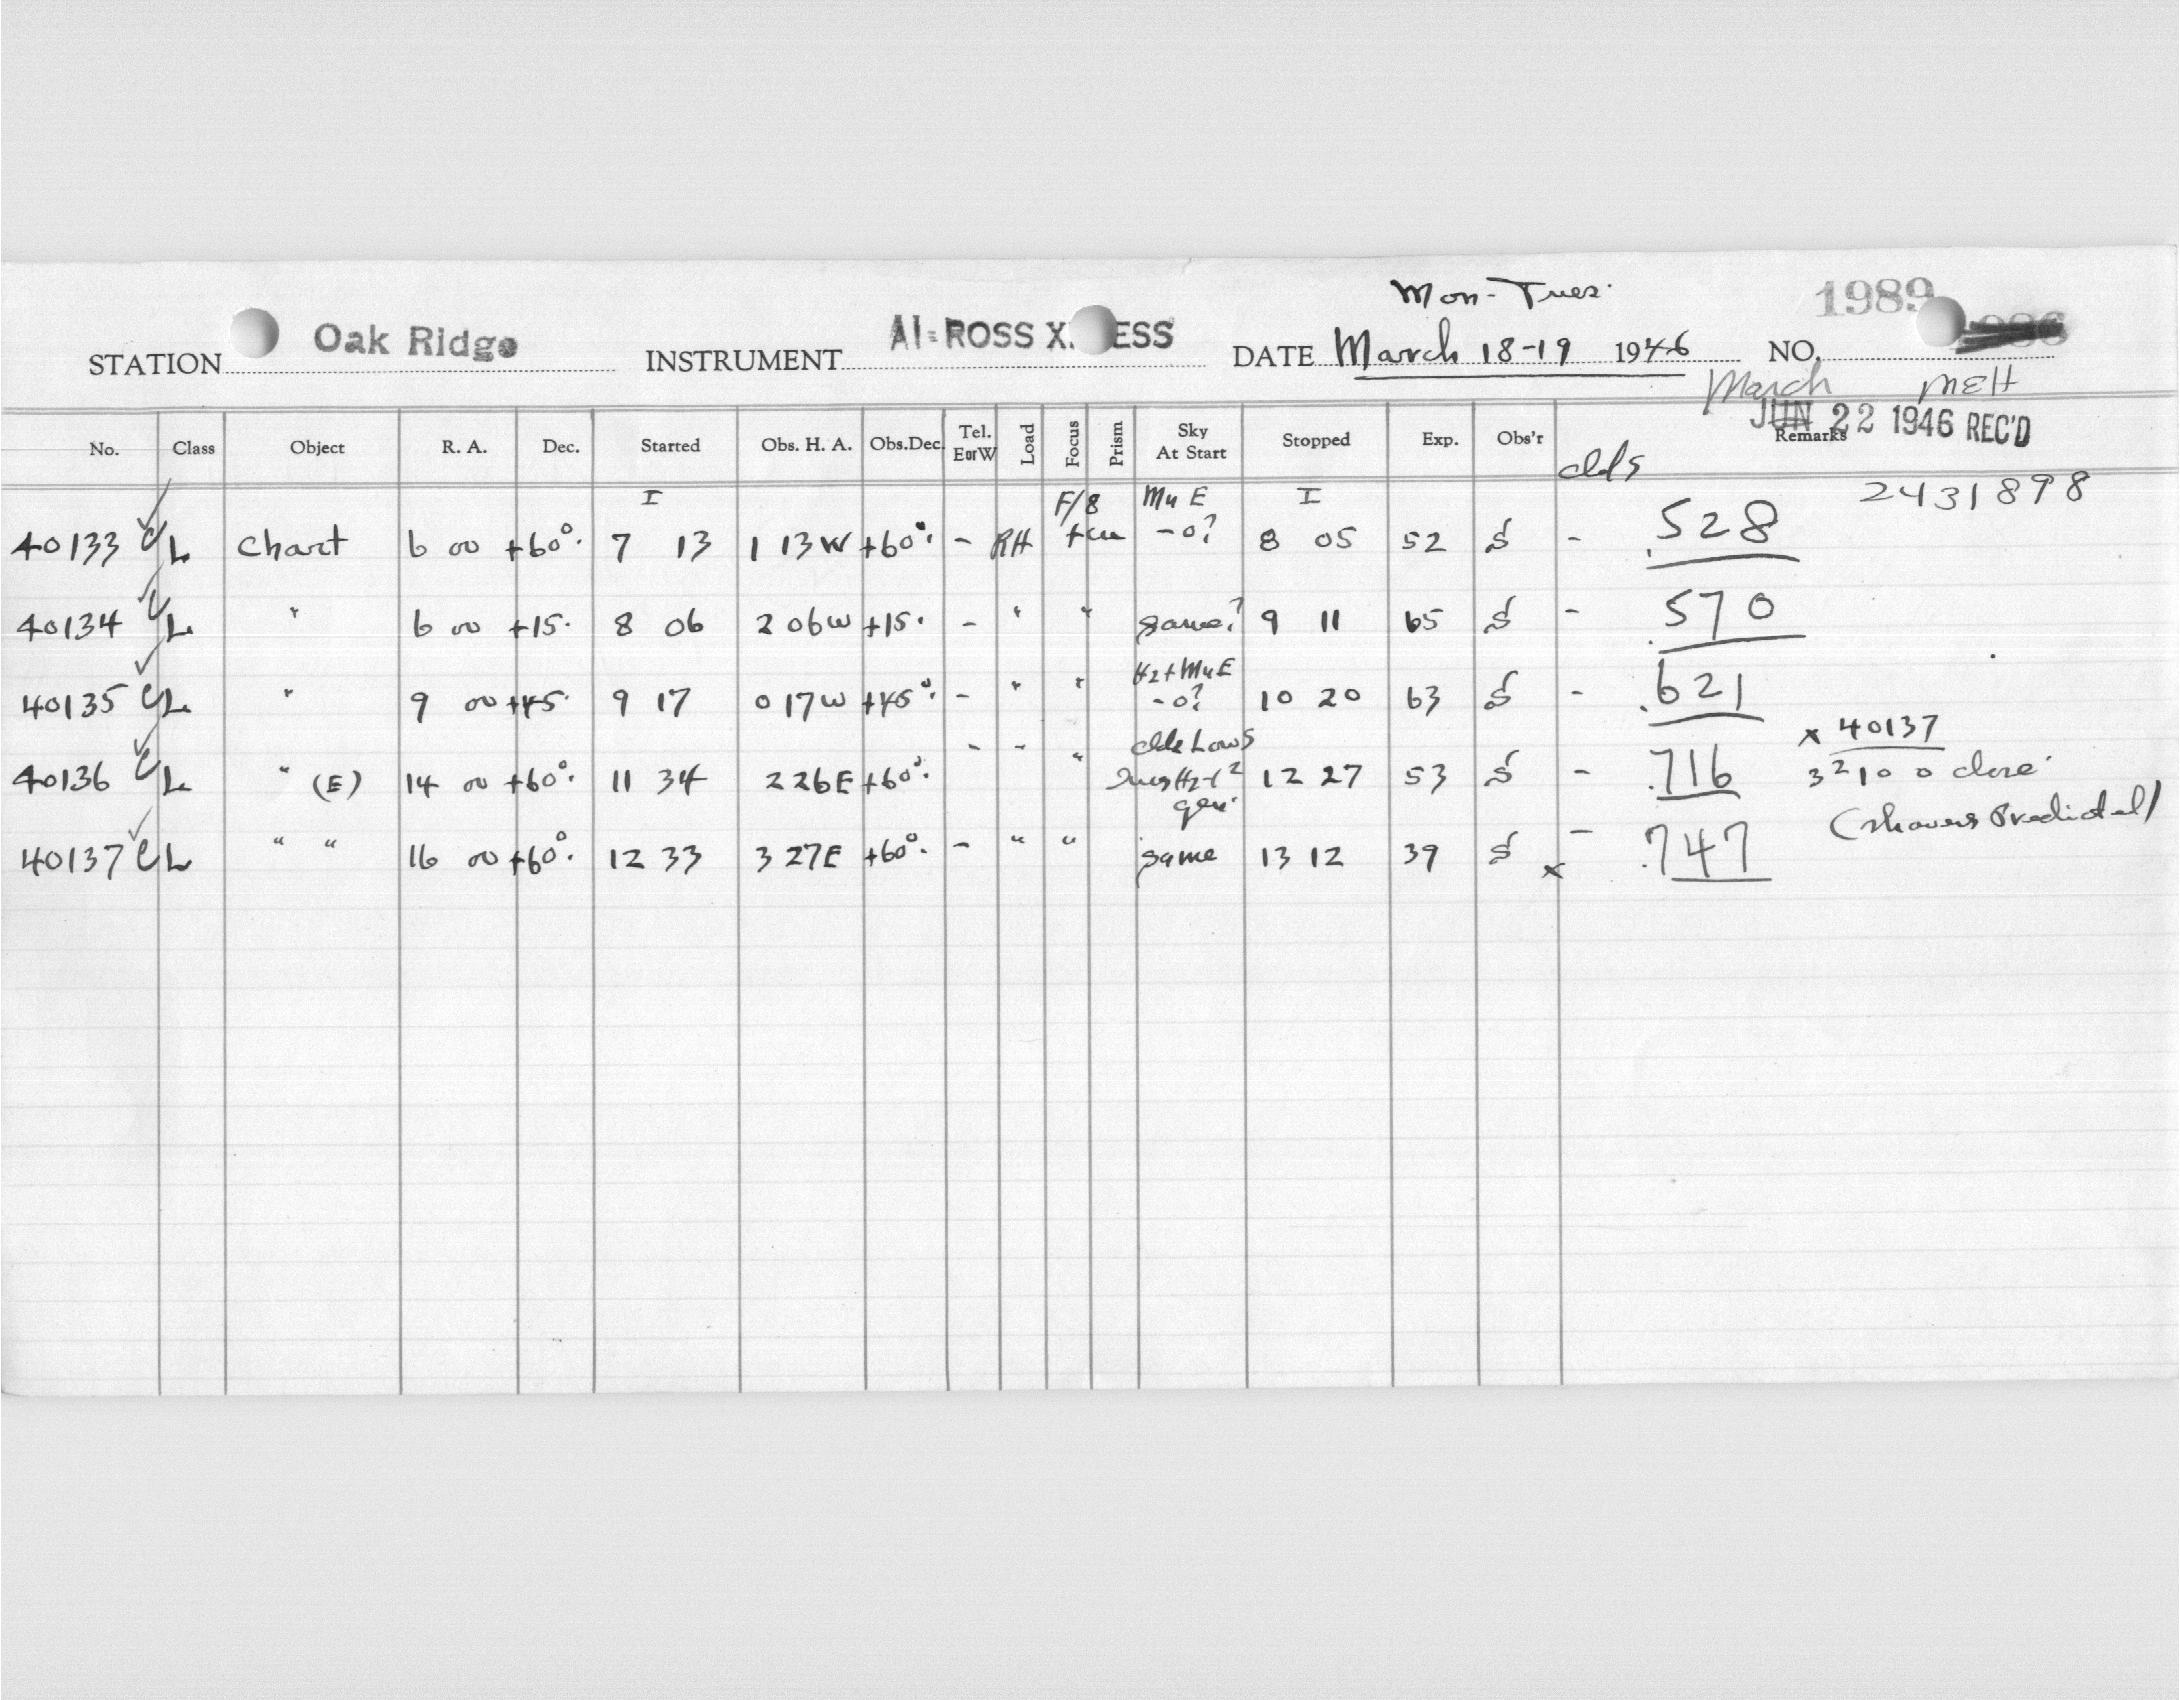 Mon - Tues.
1989
STATION Oak Ridge INSTRUMENT AI-ROSS X ESS DATE March 18-19 1946 NO.
March MEH
JUN 22 1946 REC'D
No. Class Object R. A. Dec. Started Obs. H. A. Obs.Dec. Tel. EorW Load Focus Prism Sky At Start Stopped Exp. Obs'r Remarks
clds
I F/8 Mu E I 2431898
40133 C L Chart 6 00 +60°. 7 13 1 13W +60°. - RH -0? 8 05 52 S - .528
40134 C L " 6 00 +15. 8 06 2 06W +15. - " " same? 9 11 65 S - .570
Hz + Mu E
40135 C L " 9 00 +45. 9 17 0 17W +45°. - " " -0? 10 20 63 S - .621
x 40137
40136 C L " (E) 14 00 +60°. 11 34 2 26E +60°. - - " 12 27 53 S - .716 close.
(Showers Predicted)
40137 C L " " 16 00 +60°. 12 33 3 27E +60°. - " " same 13 12 39 S x - .747